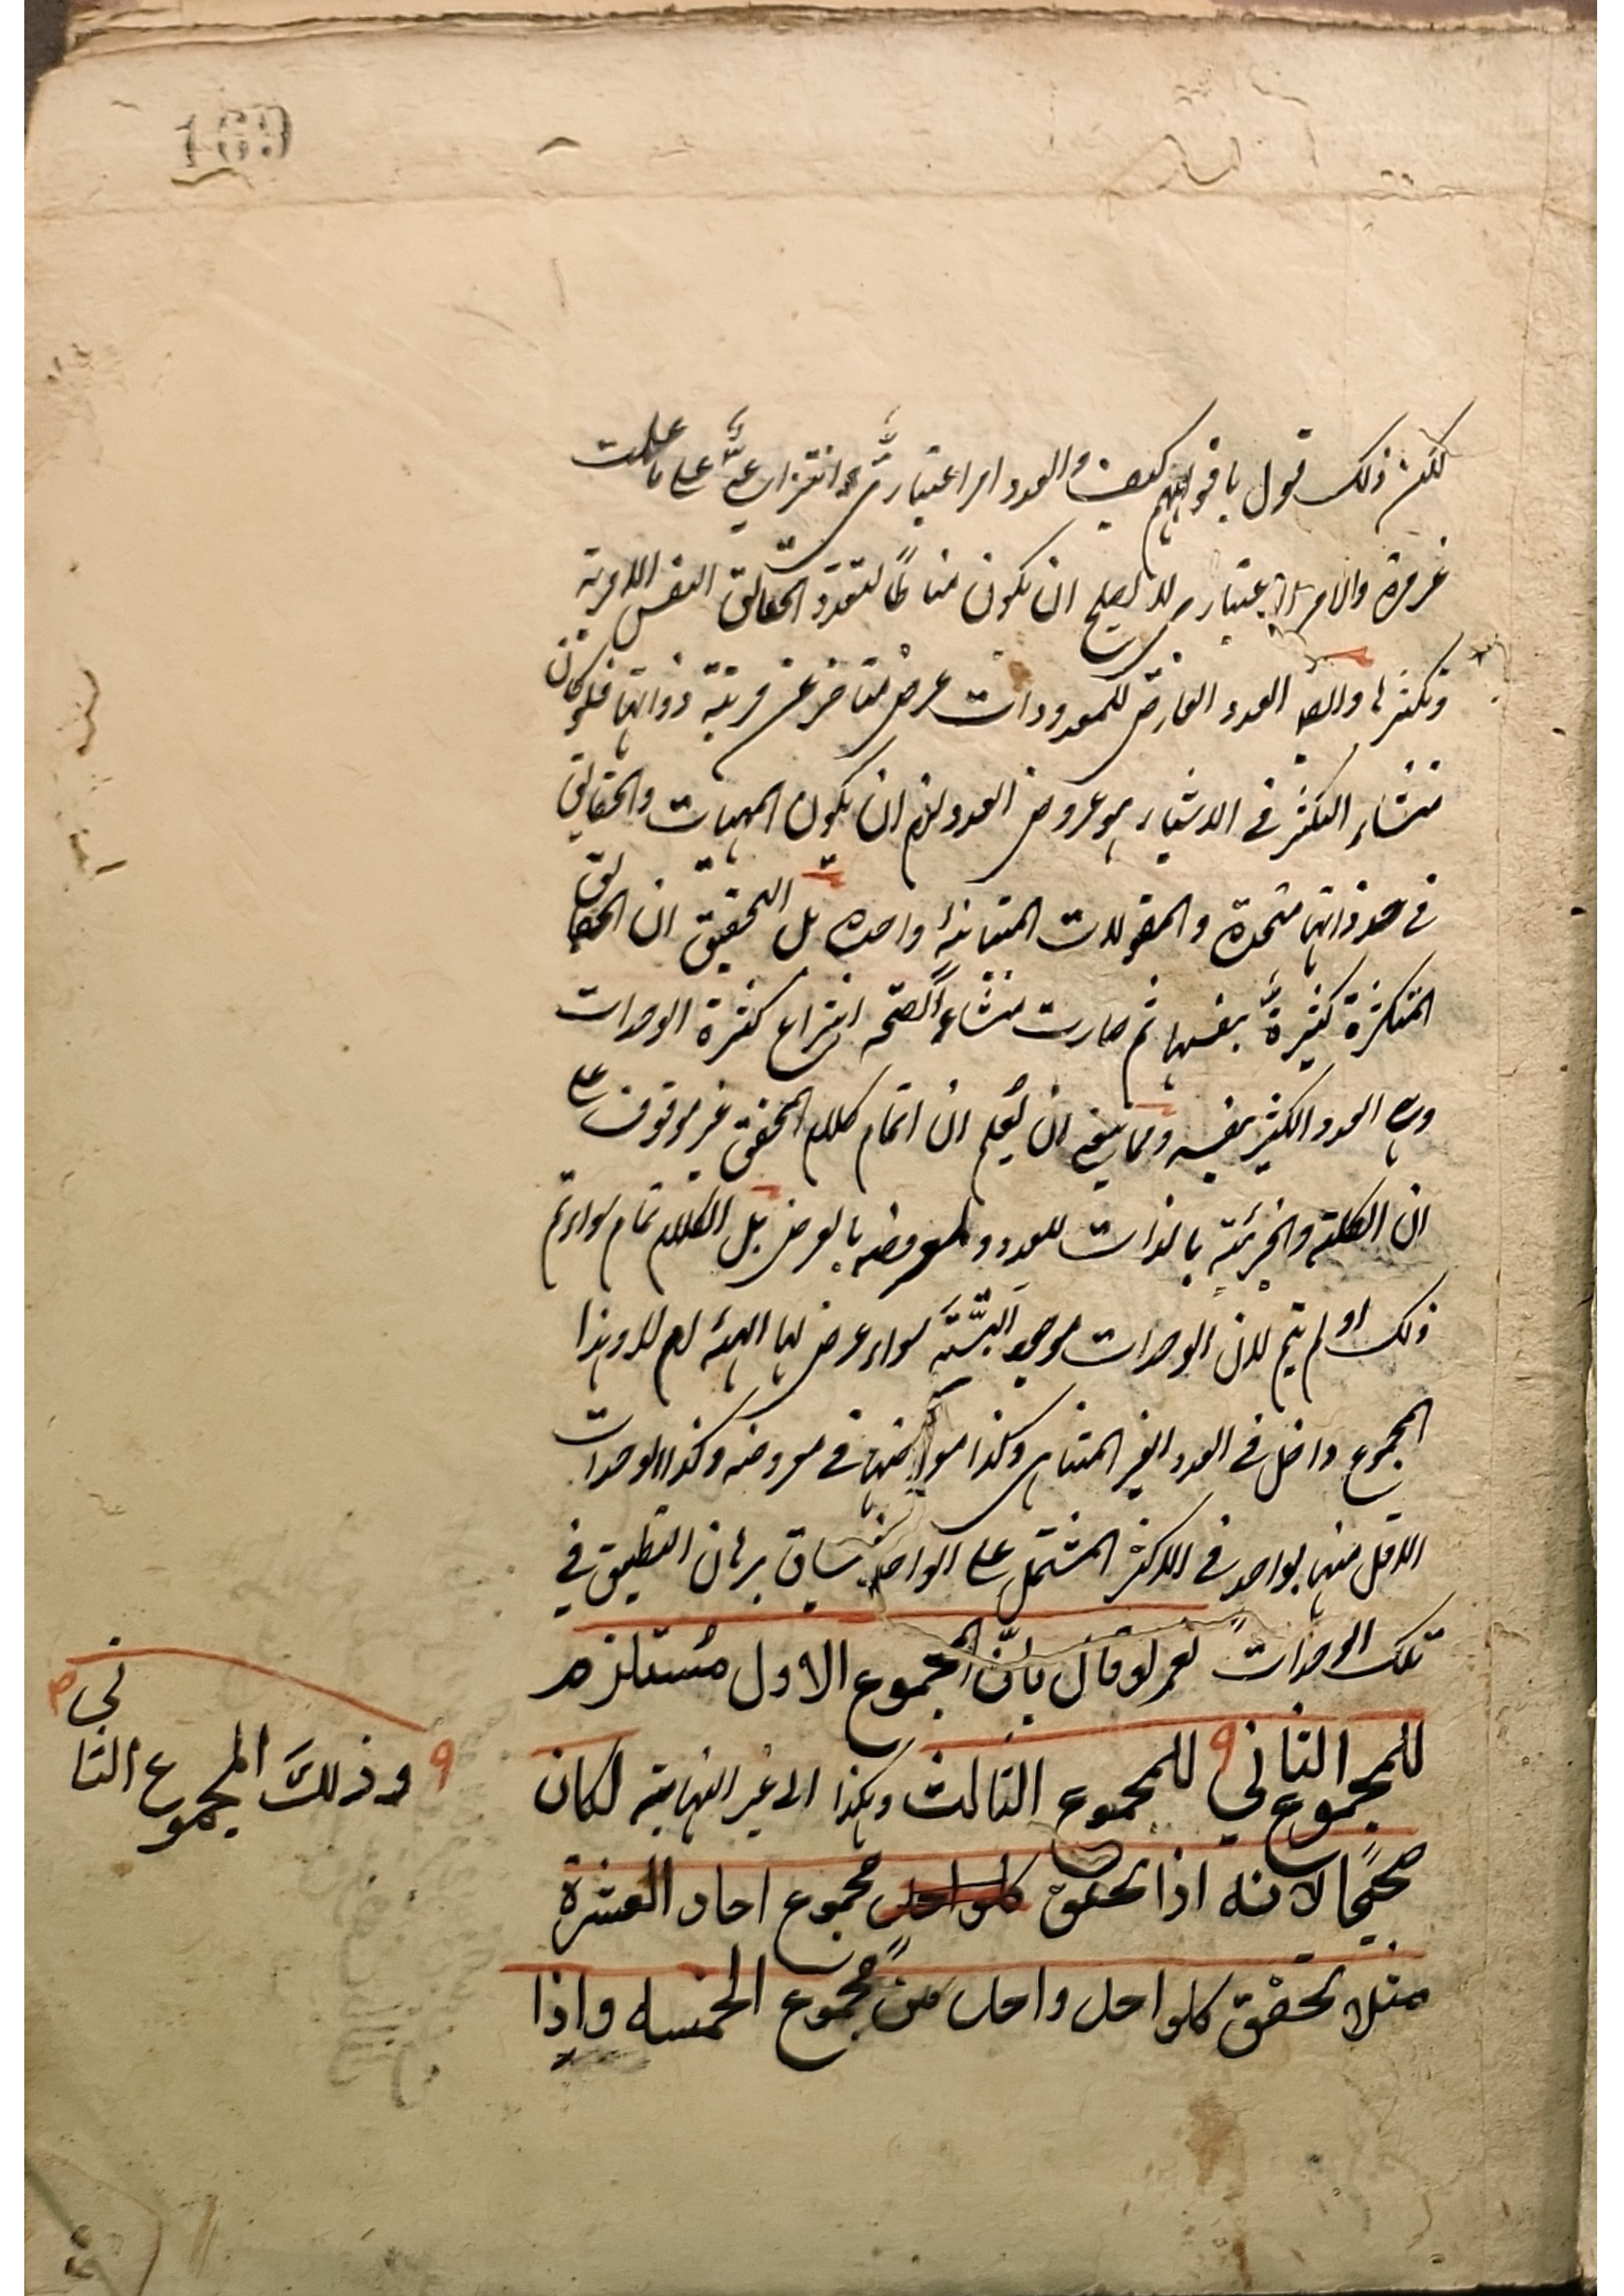 لكن ذلك قول بافواههم كيف والعدد امر اعتباريٌّ انتزاعيٌّ على ما علمت
غير مرة والامر الاعتباري لا يصلح ان يكون مناطًا لتعدد الحقائق النفس الامرية
وتكثرها وايضا العدد العارض للمعدودات عرض متاخر عن مرتبة ذواتها فلو كان
منشاء التكثر في الاشياء هو عروض العدد لزم ان يكون المهيات والحقائق
في حد ذواتها متحدة والمقولات المتباينة واحدة بل التحقيق ان الحقائق
المتكثرة كثيرةٌ بنفسها ثم صارت منشاءً لصحة انتزاع كثرة الوحدات
وهي العدد الكثير بنفسه ومما ينبغي ان يُعلم ان اتمام كلام المحقق غير موقوف على
ان الكلية والجزئية بالذات للعدد ولمعروضه بالعرض بل الكلام تمام سواء تم
ذلك او لم يتم لان الوحدات موجودة البتَّة سواء عرض لها الهيئة ام لا وهذا
المجموع داخل في العدد الغير المتناهي وكذا معروضها في معروضه وكذا الوحدات
الاقل منها بواحد في الاكثر المشتمل على الواحد فينساق برهان التطبيق في
تلك الوحدات نعم لو قال بانّ المجموع الاول مُستلزم
للمجموع الثاني ٩ للمجموع الثالث وهكذا الى غير النهاية لكان
صحيحًا لانه اذا تحقق كلواحد مجموع احاد العشرة
مثلا تحقق كلواحد واحد من مجموع الخمسه واذا
٩ وذلكَ المجموع الثاني